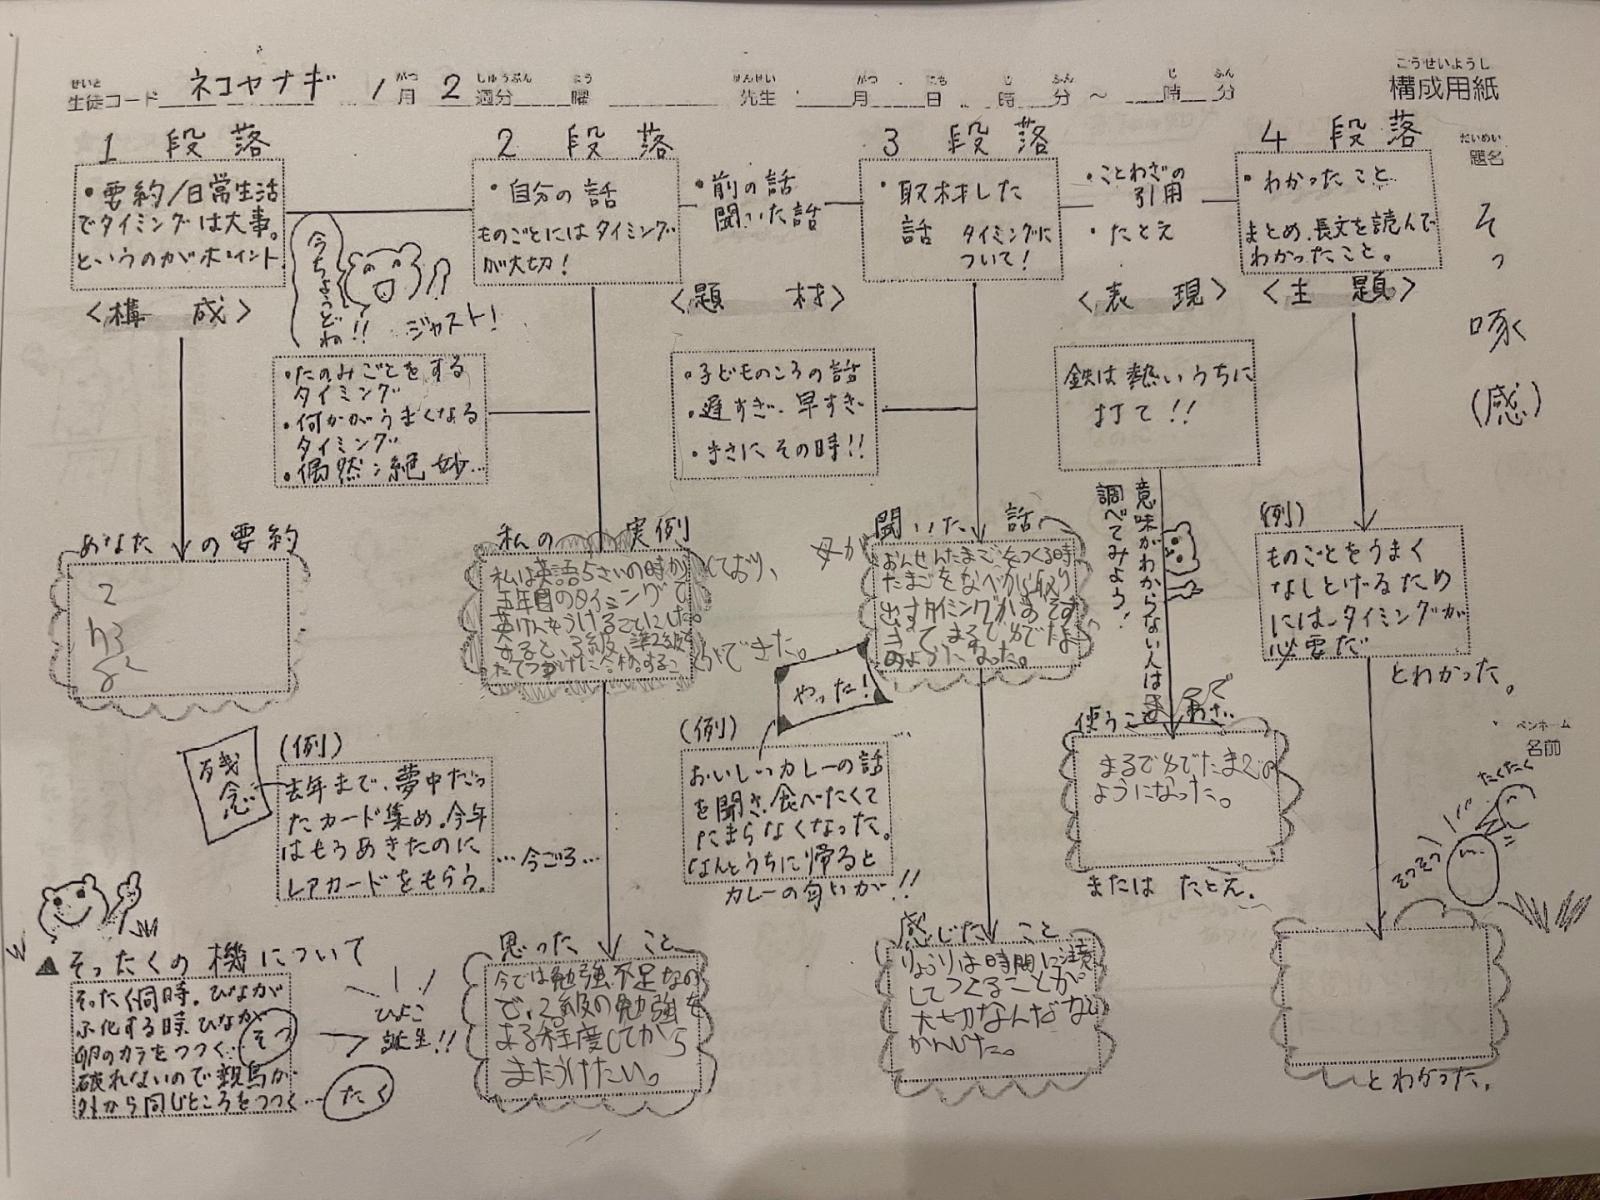 せいと がつ しゅうぶん よう せんせい がつ にち じ ふん じ ふん
生徒コード ネコヤナギ 1月 2週分 曜 先生 月 日 時 分 ～ 時 分
こうせいようし
構成用紙
だいめい
題名
そっ
啄
(感)
1 段落
・要約/日常生活
でタイミングは大事。
というのがポイント。
〈構 成〉
今ちょうどね!!
ジャスト!
2 段落
・自分の話
ものごとにはタイミング
が大切!
・前の話
聞いた話
〈題 材〉
3 段落
・取材した
話 タイミングに
ついて!
・ことわざの
引用
・たとえ
〈表 現〉
4 段落
・わかったこと
まとめ、長文を読んで
わかったこと。
〈主 題〉
・たのみごとをする
タイミング
・何かがうまくなる
タイミング
・偶然:絶妙…
・子どものころの話
・遅すぎ、早すぎ
・まさにその時!!
鉄は熱いうちに
打て!!
意味がわからない人は
調べてみよう!
あなたの要約
2
私の実例
私は英語5さいの時からしており、
五年目のタイミングで
英けんをうけることにした。
すると、3級、準2級を
たてつづけに合格することができた。
母が
聞いた話
おんせんたまごをつくる時
たまごをなべから取り
出すタイミングがおそす
ぎて、まるでゆでたまご
のようになった。
(例)
ものごとをうまく
なしとげるため
には、タイミングが
必要だ
とわかった。
残念
(例)
去年まで、夢中だっ
たカード集め。今年
はもうあきたのに
レアカードをもらう。
…今ごろ…
やった!
(例)
おいしいカレーの話
を聞き、食べたくて
たまらなくなった。
なんとうちに帰ると
カレーの匂いが!!
使うことわざ
まるでゆでたまごの
ようになった。
または たとえ。
ペンネーム
名前
たくたく
そつそつ
▲そったくの機について
そったく同時。ひなが
ふ化する時、ひなが
卵のカラをつつく…そつ
破れないので親鳥が
外から同じところをつつく…たく
ひよこ
誕生!!
思ったこと
今では勉強不足なの
で、2級の勉強を
ある程度してから
またうけたい。
感じたこと
りょうりは時間に注意
してつくることが
大切なんだなと
かんじた。
とわかった。